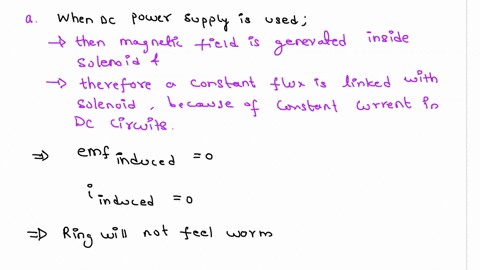 a. When DC power supply is used;
→ then magnetic field is generated inside
solenoid &
→ therefore a constant flux is linked with
solenoid, because of constant current in
DC circuits.
⇒ emf induced = 0
i induced = 0
⇒ Ring will not feel worm